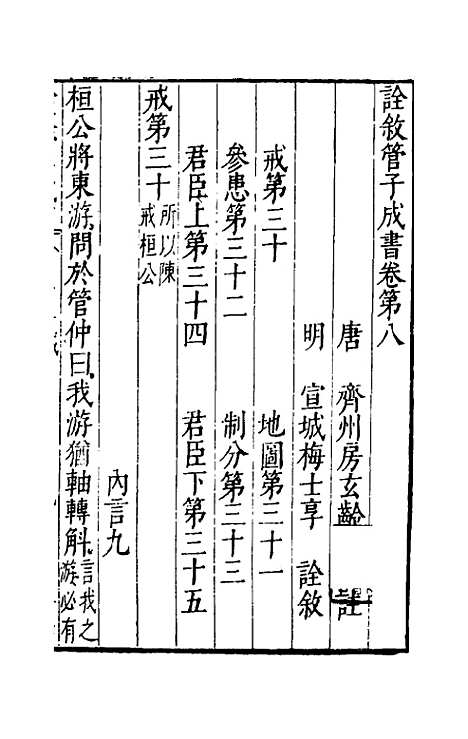 詮敘管子成書卷第八
唐 齊州房玄齡 註
明 宣城梅士享 詮敘
戒第三十 地圖第三十一
參患第三十二 制分第三十三
君臣上第三十四 君臣下第三十五
戒第三十 所以陳戒桓公
內言九
桓公將東游問於管仲曰我游猶軸轉斛言我之游必有